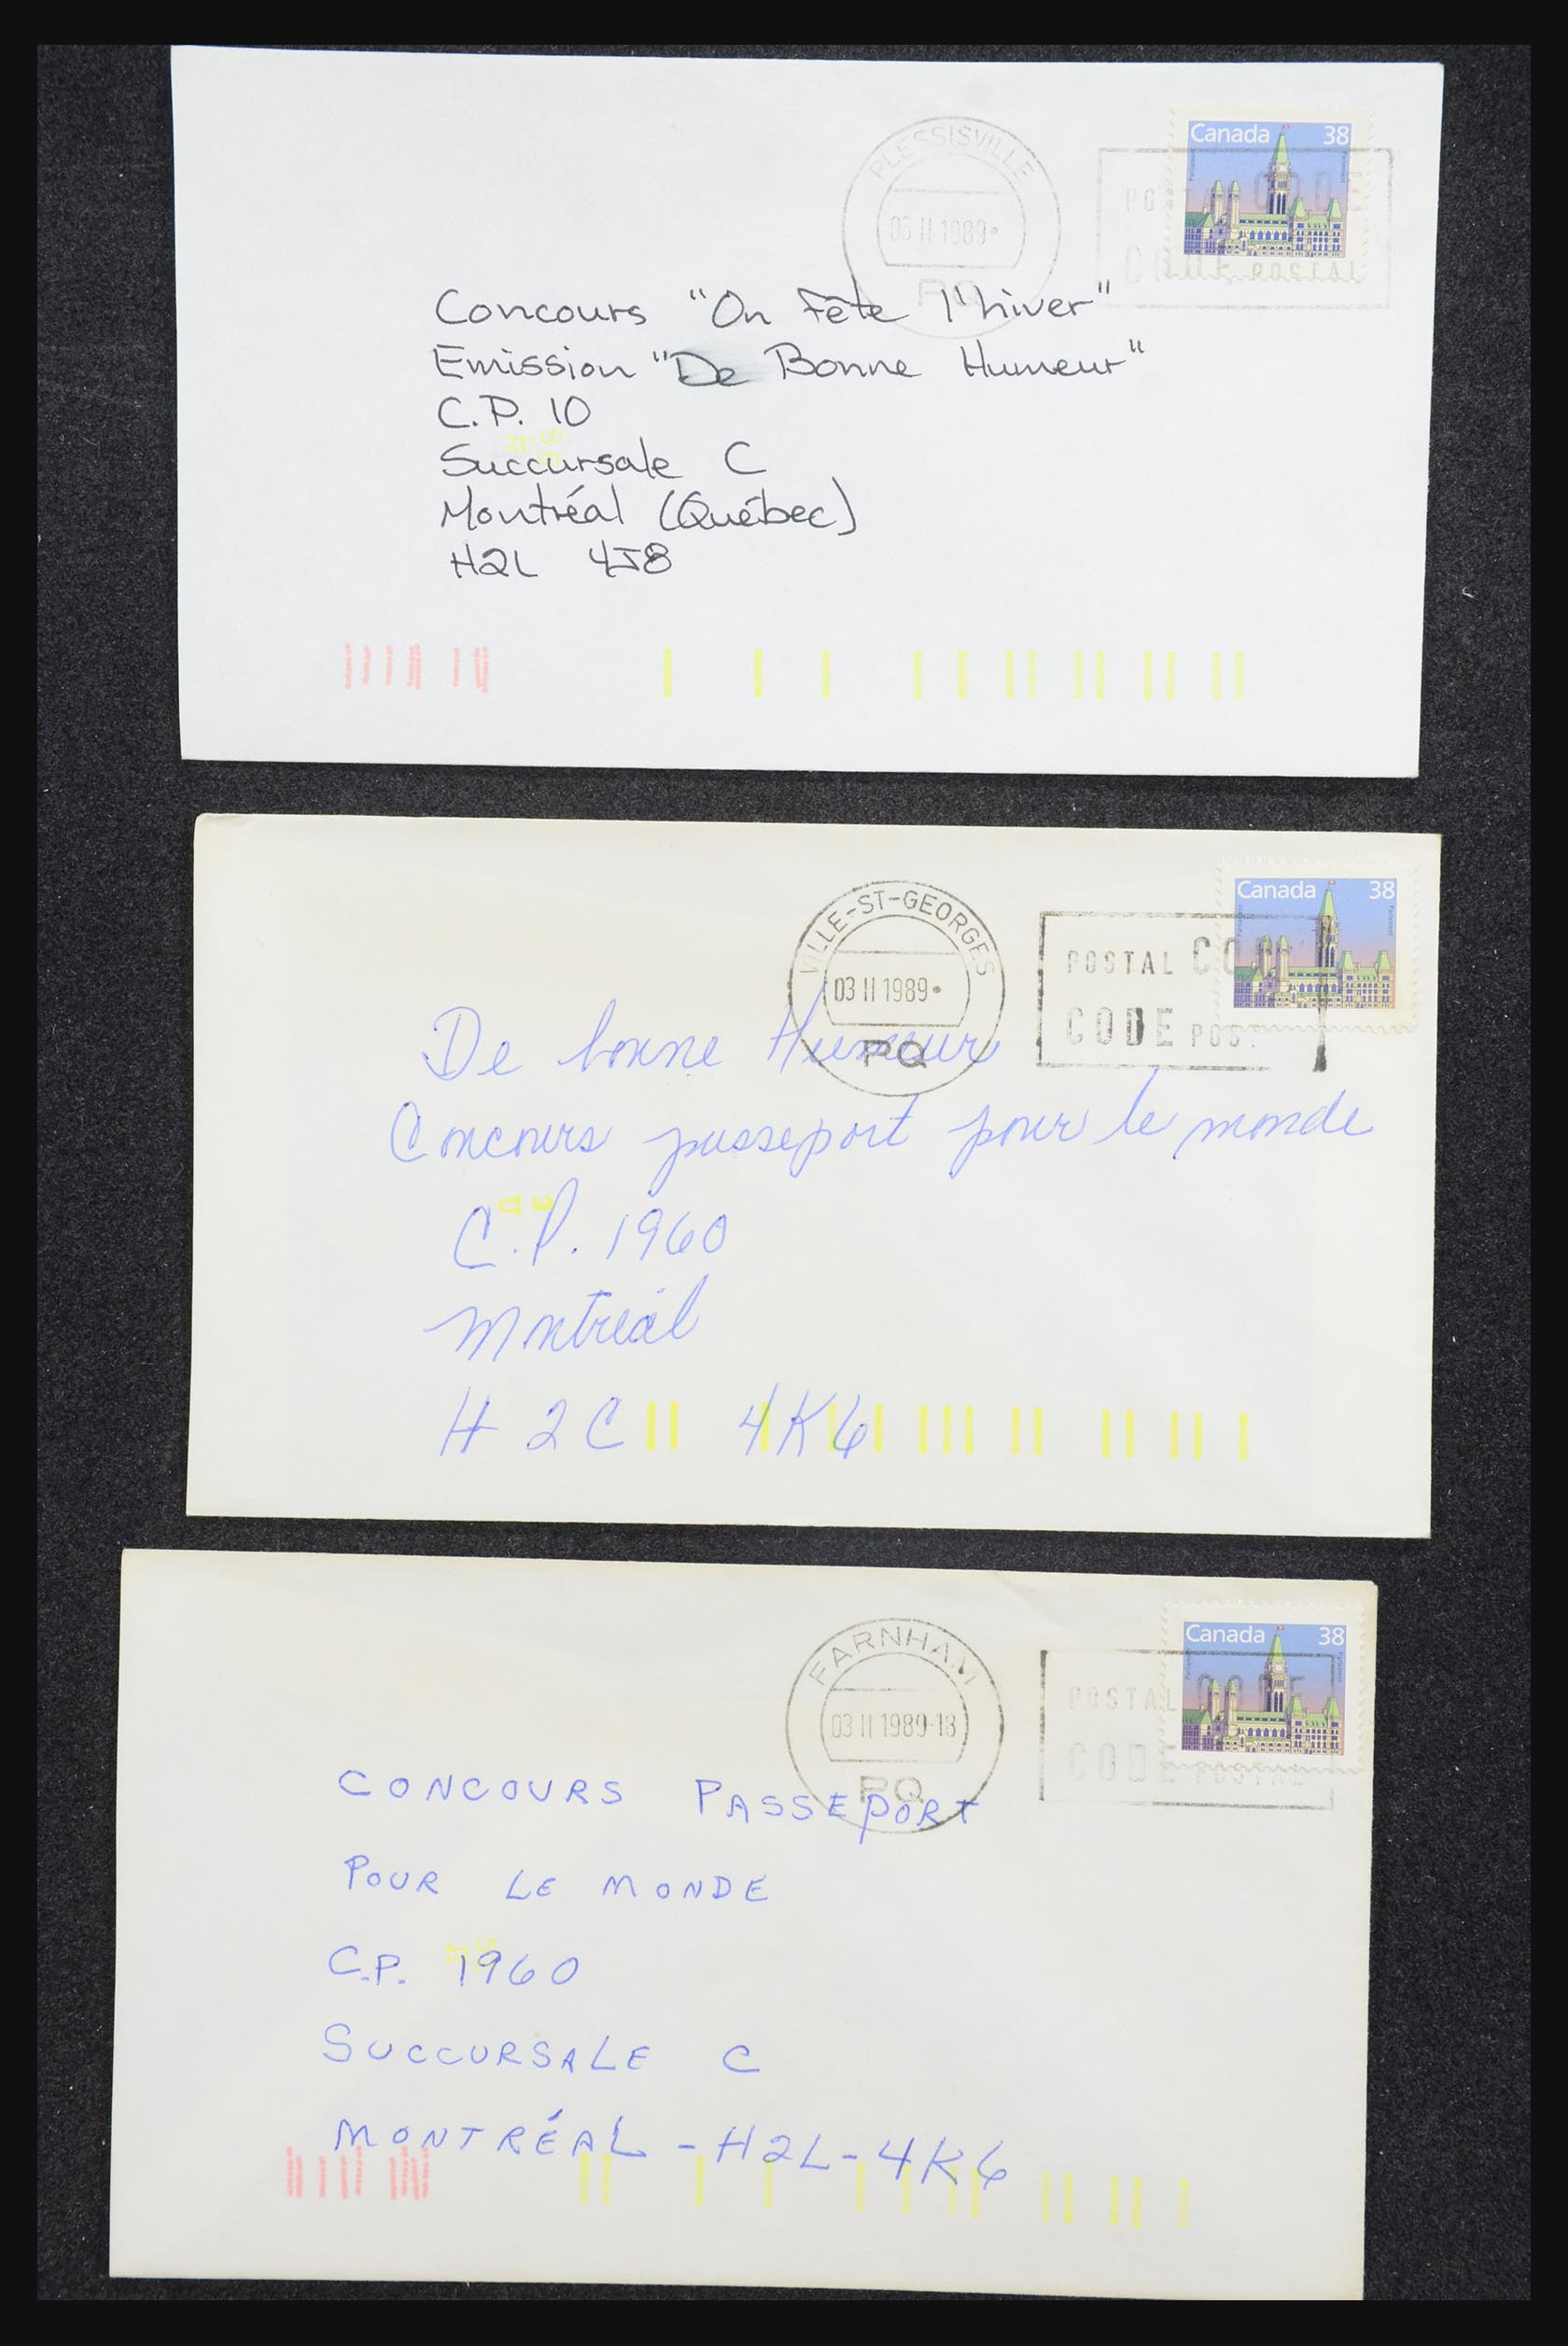 Canada 38
PLESSISVILLE
POSTAL CODE
II 1989
CODE POSTAL
PQ
Concours "On Fête l'hiver"
Emission "De Bonne Humeur"
C.P. 10
Succursale C
Montréal (Québec)
H2L 4J8
Canada 38
VILLE-ST-GEORGES
POSTAL CO
03 II 1989
CODE POST
PQ
De bonne Humeur
Concours passeport pour le monde
C.P. 1960
Montréal
H 2C 4K6
Canada 38
FARNHAM
POSTAL CODE
03 II 1989-18
CODE POSTAL
PQ
CONCOURS PASSEPORT
POUR LE MONDE
C.P. 1960
SUCCURSALE C
MONTRÉAL - H2L - 4K6